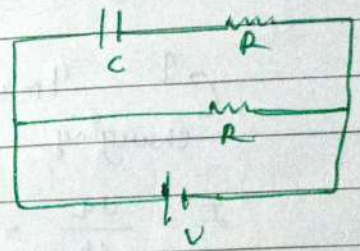 C R
R
V